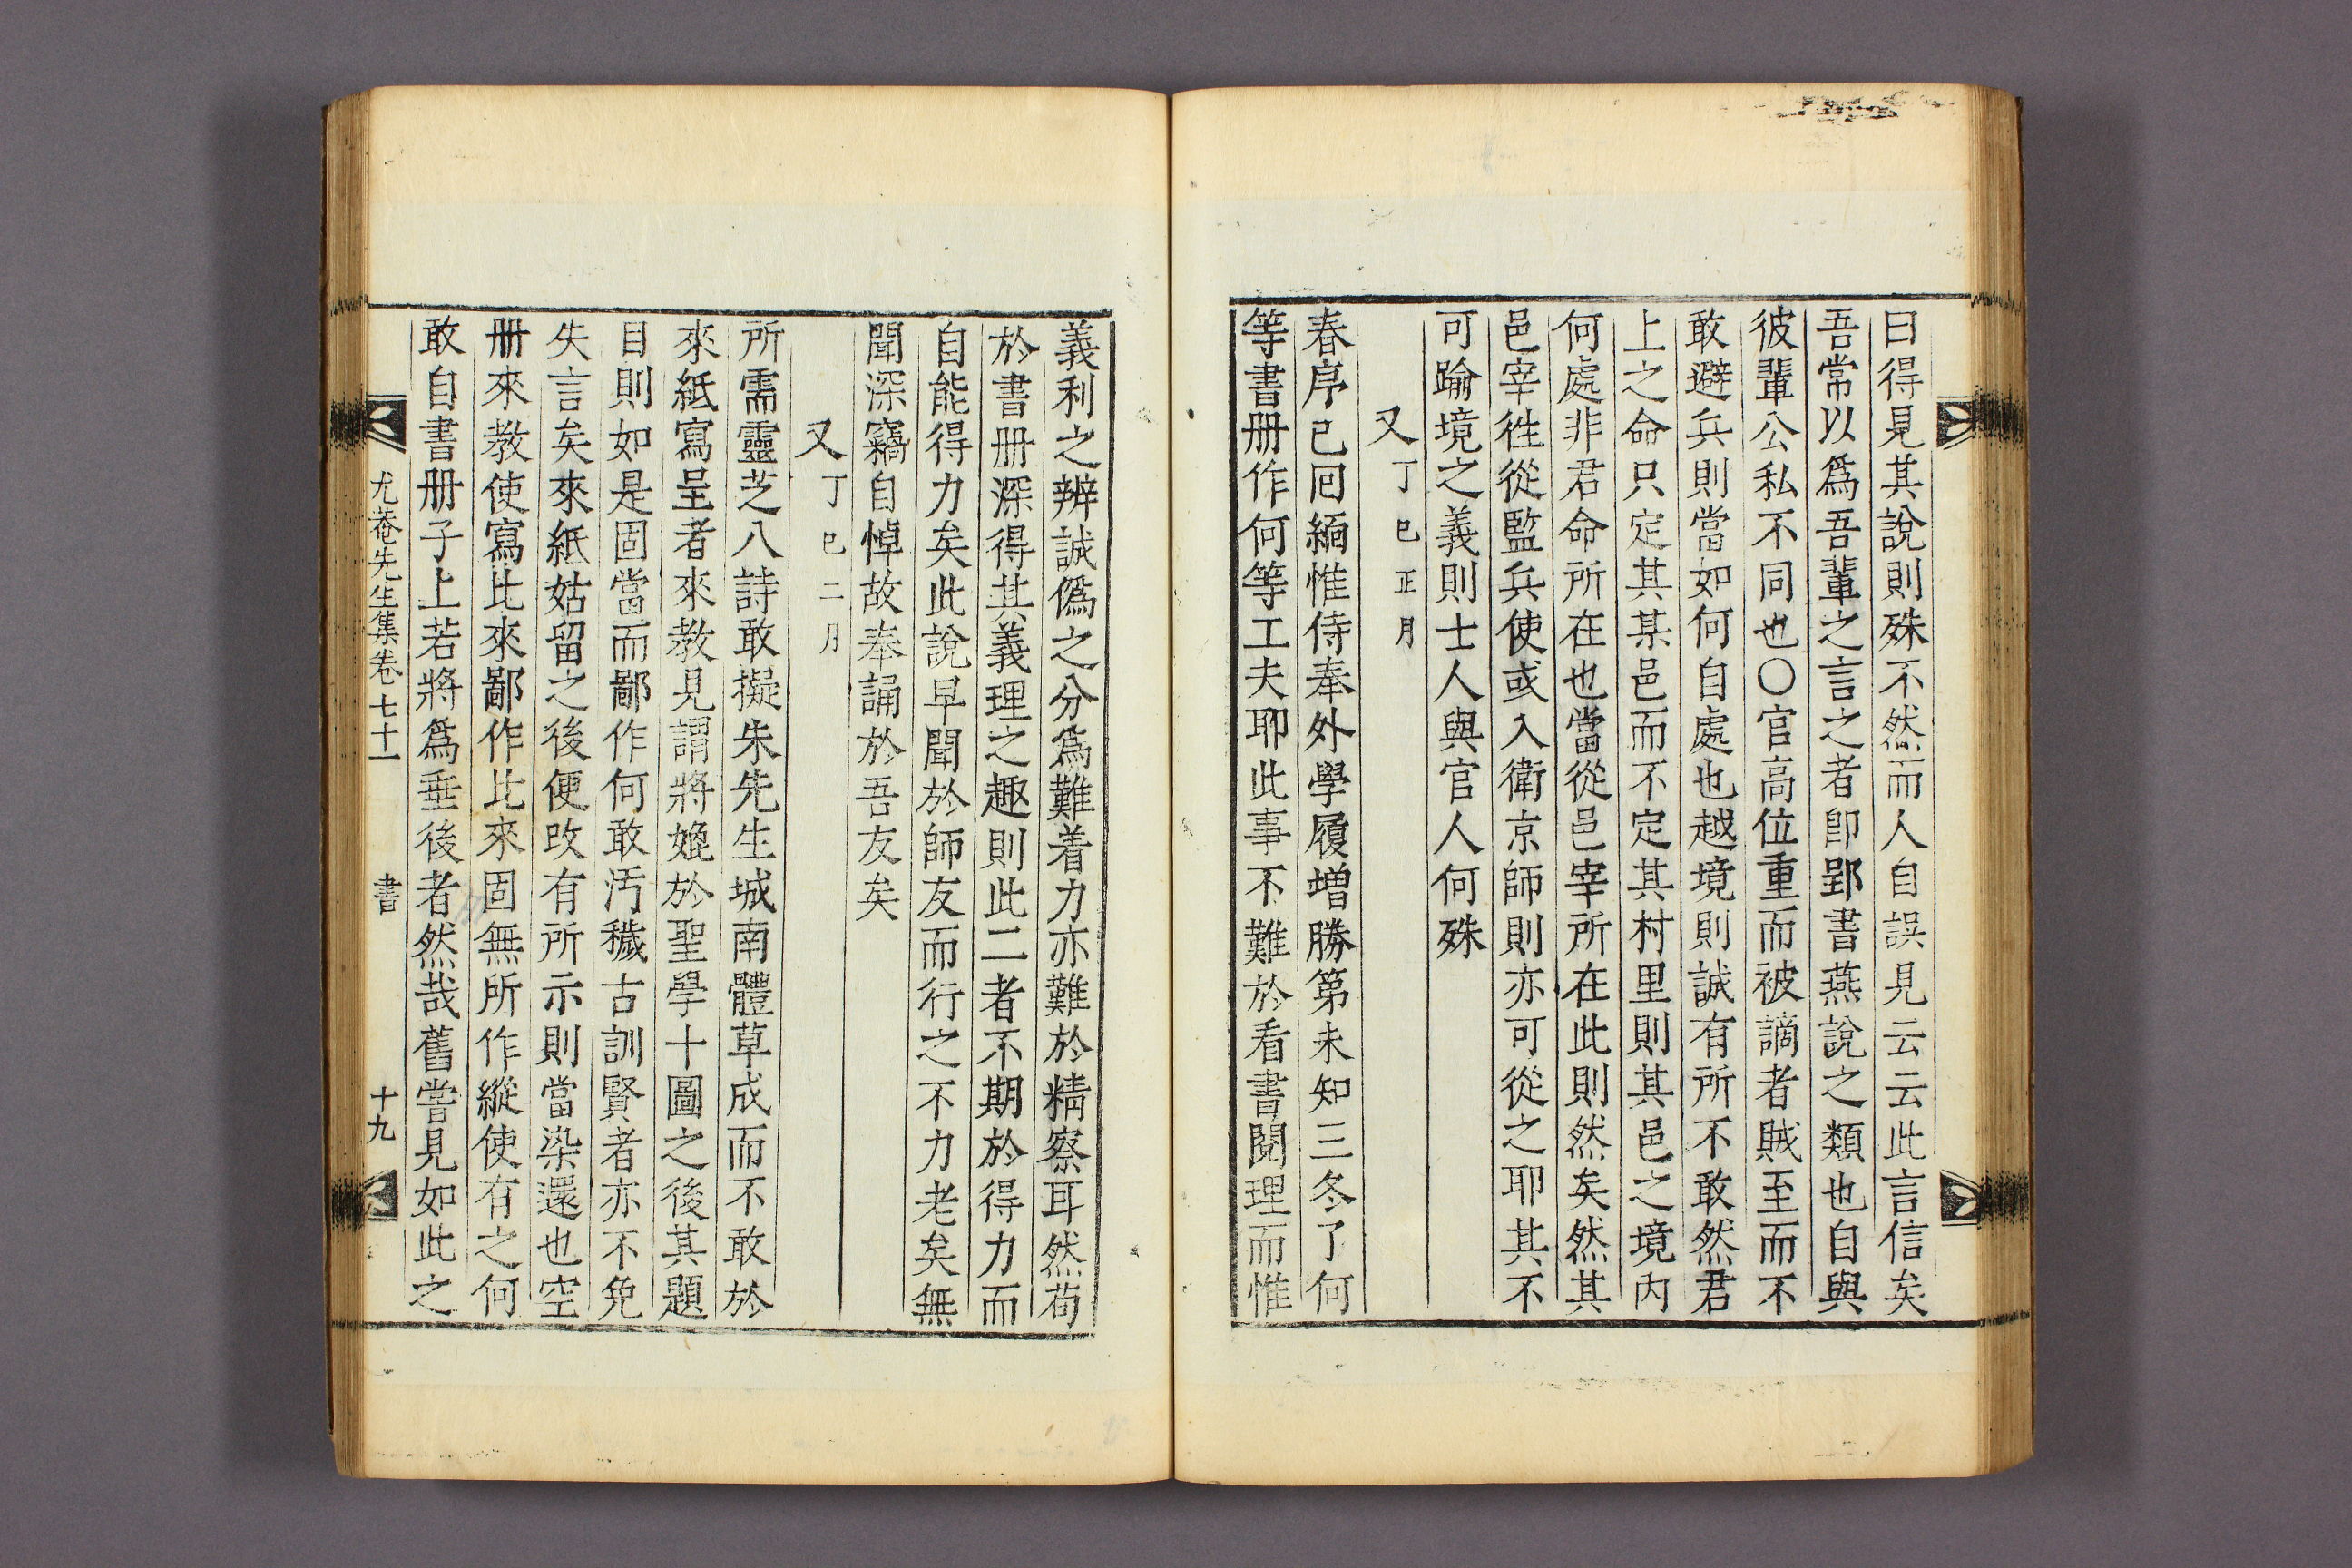 曰得見其說則殊不然而人自誤見云云此言信矣
吾常以爲吾輩之言之者卽郢書燕說之類也自與
彼輩公私不同也○官高位重而被謫者賊至而不
敢避兵則當如何自處也越境則誠有所不敢然君
上之命只定其某邑而不定其村里則其邑之境內
何處非君命所在也當從邑宰所在此則然矣然其
邑宰徃從監兵使或入衛京師則亦可從之耶其不
可踰境之義則士人與官人何殊
又丁巳正月
春序已回緬惟侍奉外學履增勝第未知三冬了何
等書册作何等工夫耶此事不難於看書閱理而惟
義利之辨誠僞之分爲難着力亦難於精察耳然苟
於書册深得其義理之趣則此二者不期於得力而
自能得力矣此說早聞於師友而行之不力老矣無
聞深竊自悼故奉誦於吾友矣
又丁巳二月
所需靈芝八詩敢擬朱先生城南體草成而不敢於
來紙寫呈者來教見謂將媲於聖學十圖之後其題
目則如是固當而鄙作何敢汚穢古訓賢者亦不免
失言矣來紙姑留之後便改有所示則當染還也空
册來教使寫比來鄙作比來固無所作縱使有之何
敢自書册子上若將爲垂後者然哉舊嘗見如此之
尤菴先生集卷七十一
書
十九